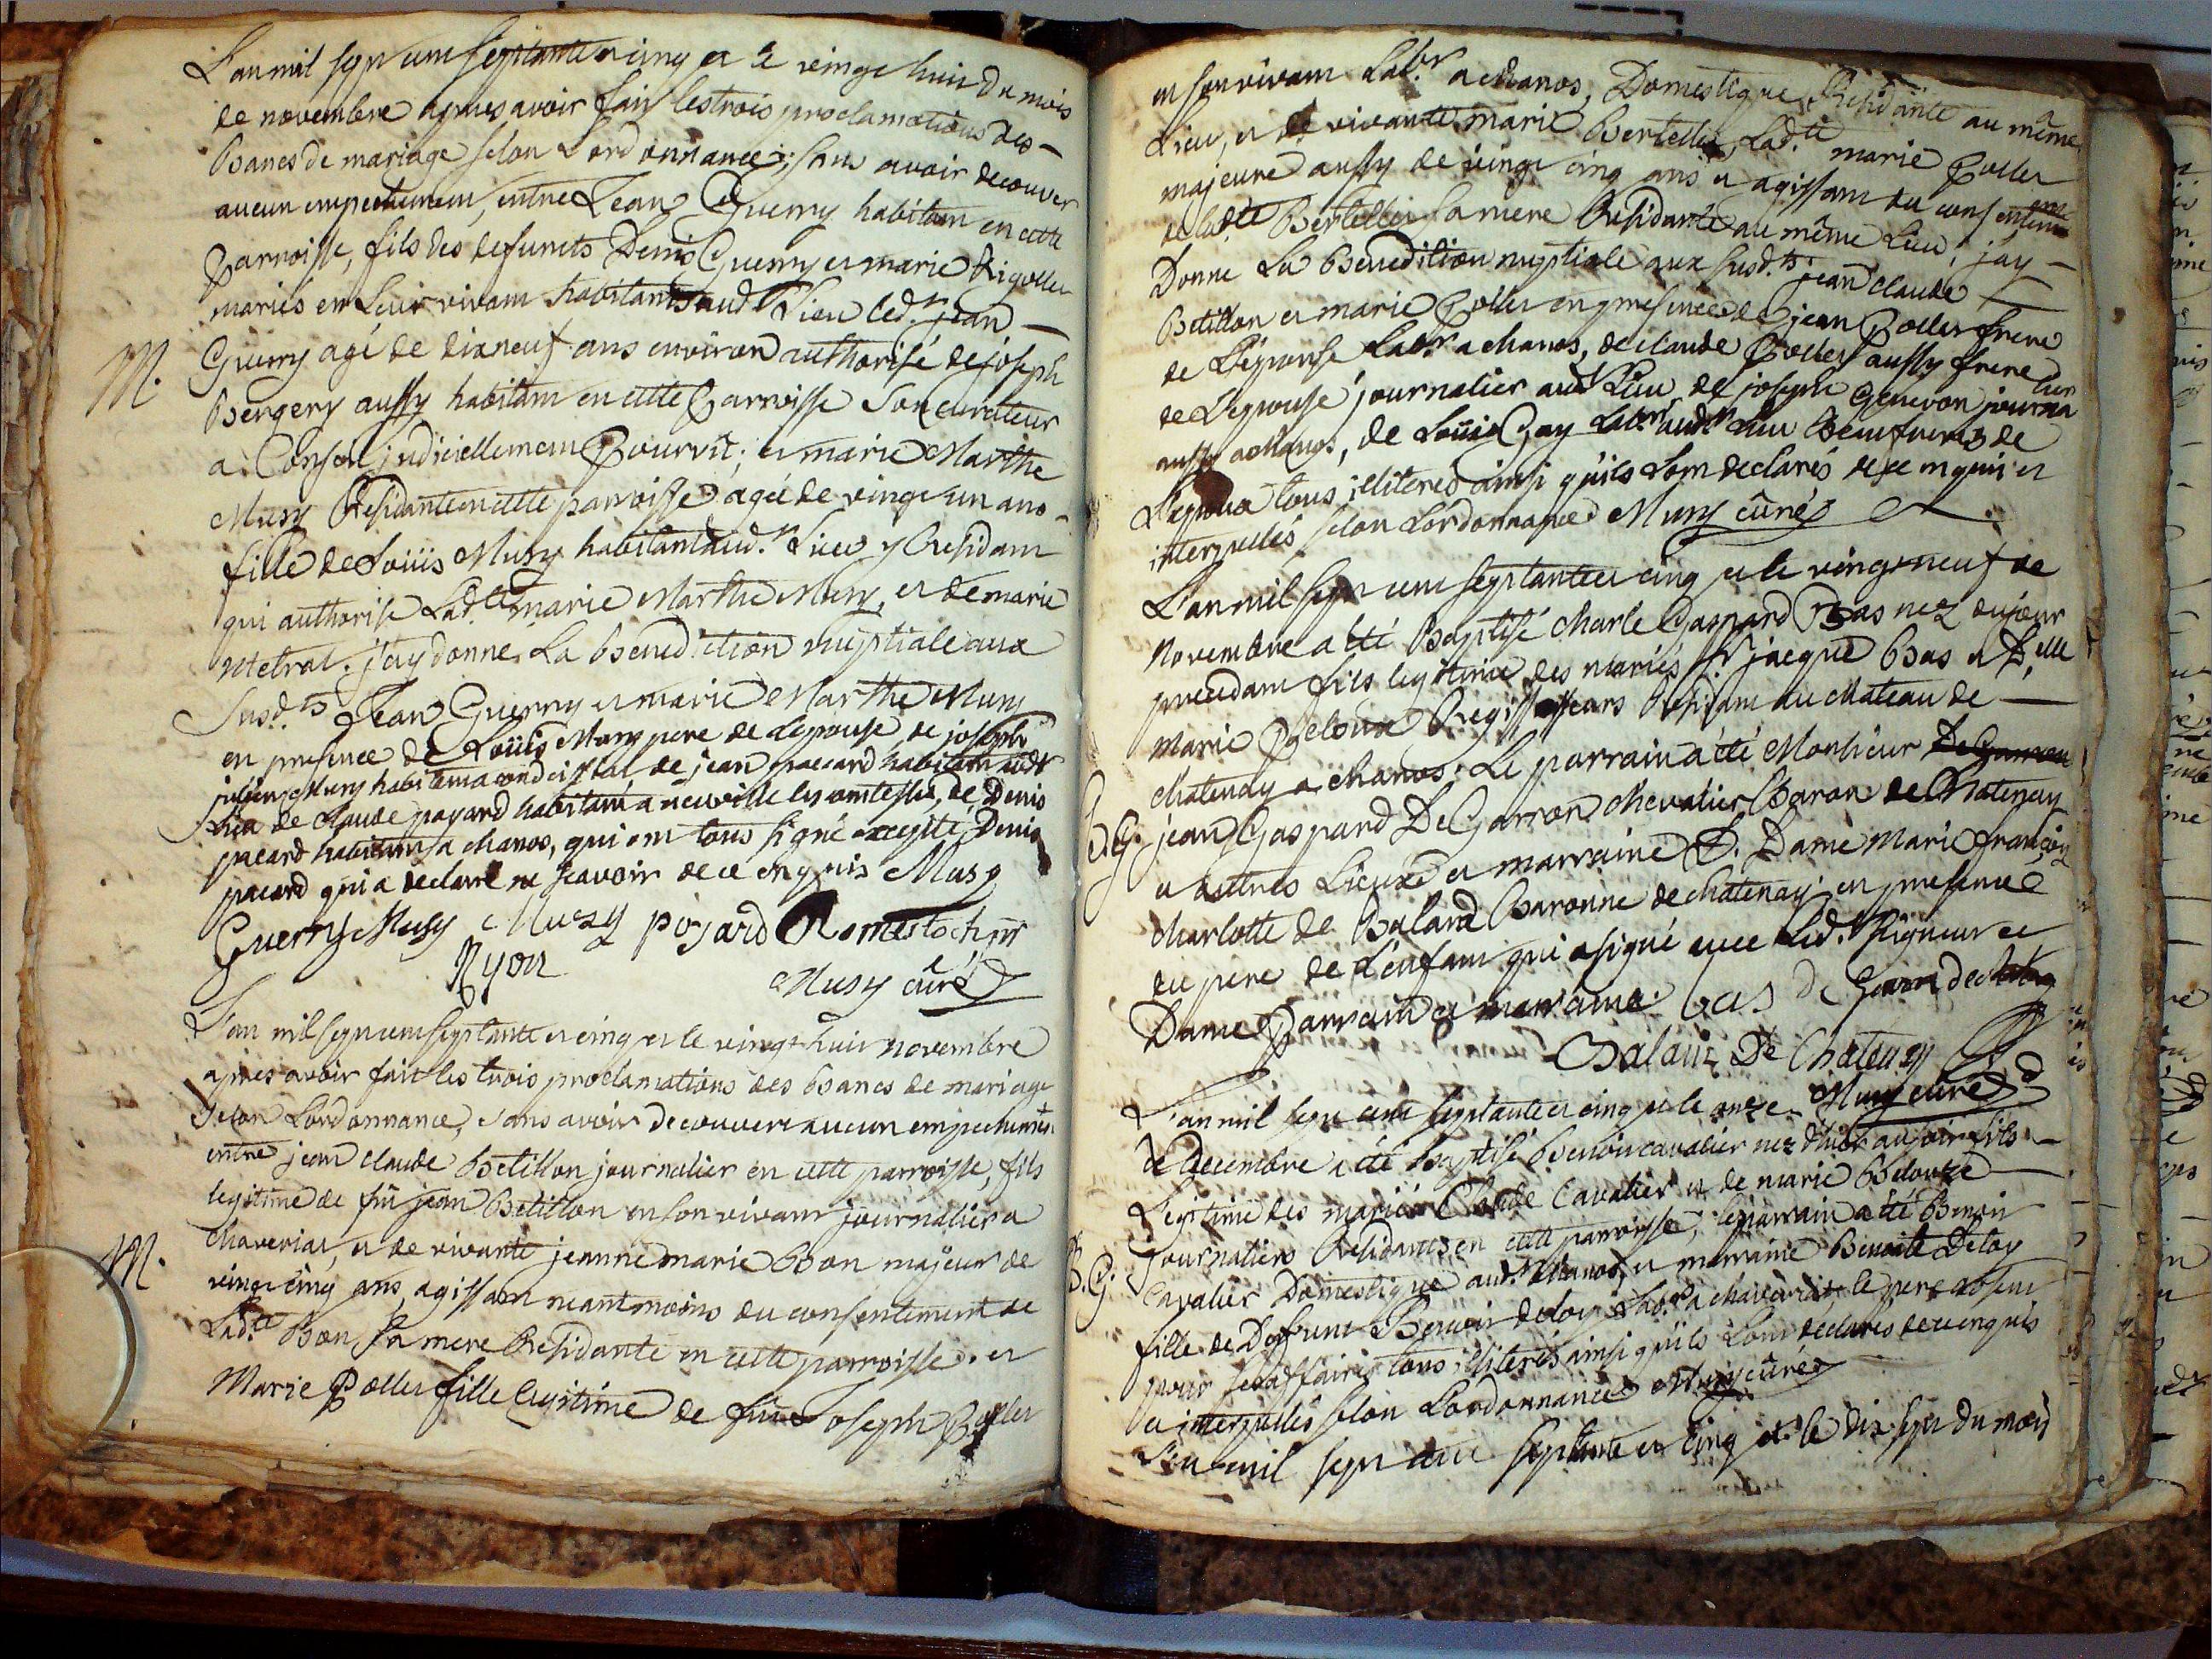 L'an mil sept cent septante et cinq et le vingt huit du mois
de novembre apres avoir fait les trois proclamations des
Bancs de mariage selon L'ordonnance; sans avoir decouver
aucun empechement, entre Jean Guerry habitant en cette
Parroisse, fils des defunts Denis Guerry et marie Rigollet
mariés en Leur vivant habitants aud.t Lieu led.t jean
M. Guerry agé de dixneuf ans environ authorisé de joseph
Bergery aussy habitant en cette Parroisse Son curateur
a Conseil judiciellement Pourvit; et marie Marthe
Musy Residante en cette parroisse agée de vingt un ans
fille de Loüis Musy habitant aud.t Lieu y Residant
qui authorise Lad.te marie Marthe Musy, et de marie
Metral. j'ay donné La Benediction nuptiale aux
Susd.ts Jean Guerry et marie Marthe Musy
en presence de Loüis Musy pere de L'epouse, de joseph
Musy habitant a condeissiat de jean pacard habitant aud.t
Lieu de Claude poyard habitant a neuville les comtesse, de Denis
pacard habitant a chanos, qui ont tous signé excepté Denis
pacard qui a declaré ne scavoir de ce enquis Musy
Guerry Musy Musy poyard
Ryon Musy curé
L'an mil sept cent septante et cinq et le vingt huit novembre
apres avoir fait les trois proclamations des Bancs de mariage
selon L'ordonnance, sans avoir decouvert aucun empechement
entre jean claude Betillon journalier en cette parroisse, fils
legitime de fû jean Betillon en son vivant journalier a
M. chaveriat, et de vivante jeanne marie Bon majeur de
vingt cinq ans, agissant neantmoins du consentement de
Lad.te Bon sa mere Residante en cette parroisse. et
Marie Pollet fille Legitime de fû Joseph Pollet
en son vivant Lab.r a chanos, Domestique Residante au même
Lieu, et de vivante marie Bertellet, Lad.te marie Pollet
majeure aussy de vingt cinq ans et agissant du consentement
de lad.te Bertellet sa mere Residante au même Lieu; j'ay
Donné La Benedition nuptiale aux susd.ts jean claude
Betillon et marie Pollet en presence de jean Pollet frere
de L'epouse Lab.r a chanos, de claude Pollet aussy frere
de L'epouse journalier aud.t Lieu de joseph Genevon journalier
aussy a chanos, de Loüis Gay Lab.r aud.t Lieu Beaufreres de
L'epoux tous illiterés ainsi qu'ils L'ont declarés de ce enquis et
interpellés selon L'ordonnance Musy curé
L'an mil sept cent septante et cinq et le vingt neuf de
Novembre a été Baptisé charle Gaspard Bas nez du jour
precedant fils legitime des mariés S.r jacque Bas et D.elle
Marie Regisseurs Residant au chateau de
chatenay a chanos. Le parrain a été Monsieur
B.G. jean Gaspard De Garron chevalier Baron de Chatenay
et autres Lieux et marraine D. Dame Marie françoise
charlotte de Baland Baronne de chatenay en presence
du pere de L'enfant qui a signé avec Led.t seigneur et
Dame Parrain et marraine. bas de Garron de chatenay
De Chatenay
Musy curé
L'an mil sept cent septante et cinq et le onze
de Decembre a été baptisé Benoit cavalier nez d'hier au soir fils
Legitime des mariés Claude Cavalier et de marie
B.G. journaliers Residants en cette parroisse, le parrain a été Benoit
Cavalier Domestique aud.t chanos, et marraine Benoite Deloy
fille de Defunt Benoit deloy Lab.r a chaveriat, le pere absent
pour ses affaires tous illiterés ainsi qu'ils L'ont declarés de ce enquis
et interpellés selon L'ordonnance Musy curé
L'an mil sept cent septante et cinq et le dix sept du mois